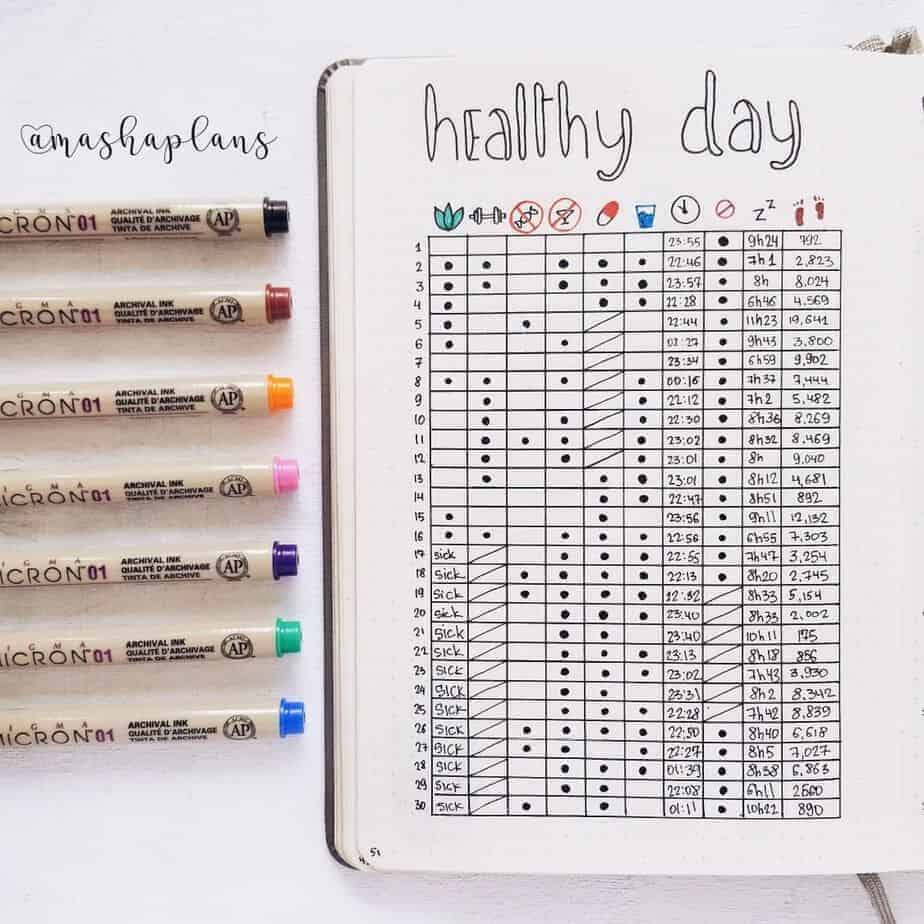 @mashaplans
healthy day
CRON 01 ARCHIVAL INK QUALITÉ D'ARCHIVAGE TINTA DE ARCHIVE AP
IGMA CRON 01 ARCHIVAL INK QUALITÉ D'ARCHIVAGE TINTA DE ARCHIVE AP
IGMA CRON 01 ARCHIVAL INK QUALITÉ D'ARCHIVAGE TINTA DE ARCHIVE AP
IGMA MICRON 01 ARCHIVAL INK QUALITÉ D'ARCHIVAGE TINTA DE ARCHIVE AP
IGMA MICRON 01 ARCHIVAL INK QUALITÉ D'ARCHIVAGE TINTA DE ARCHIVE AP
IGMA MICRON 01 ARCHIVAL INK QUALITÉ D'ARCHIVAGE TINTA DE ARCHIVE AP
IGMA MICRON 01 ARCHIVAL INK QUALITÉ D'ARCHIVAGE TINTA DE ARCHIVE AP
zz
1 23:55 9h24 792
2 22:46 7h1 2,823
3 23:57 8h 8,024
4 22:28 6h46 4,569
5 22:44 11h23 19,641
6 9h43 3,800
7 23:34 6h59 9,902
8 00:16 7h37 7,444
9 22:12 7h2 5,482
10 22:30 8h36 8,269
11 23:02 8h32 8,469
12 23:01 8h 9,040
13 23:01 8h12 4,681
14 22:47 8h51 892
15 23:56 9h11 12,132
16 22:56 6h55 7,303
17 sick 22:55 7h47 3,254
18 sick 22:13 8h20 2,745
19 sick 8h33 5,154
20 sick 23:40 8h33 2,002
21 sick 23:40 10h11 175
22 sick 23:13 8h18 856
23 sick 23:02 7h43 3,930
24 sick 23:31 8h2 8,342
25 sick 22:28 7h42 8,839
26 sick 22:50 8h40 6,618
27 sick 22:27 8h5 7,027
28 sick 01:39 8h38 6,863
29 sick 22:08 6h11 2560
30 sick 01:11 10h22 890
51